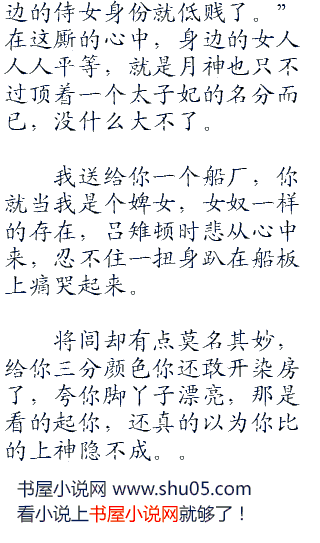 边的侍女身份就低贱了。”
在这厮的心中，身边的女人
人人平等，就是月神也只不
过顶着一个太子妃的名分而
已，没什么大不了。
我送给你一个船厂，你
就当我是个婢女，女奴一样
的存在，吕雉顿时悲从心中
来，忍不住一扭身趴在船板
上痛哭起来。
将闾却有点莫名其妙，
给你三分颜色你还敢开染房
了，夸你脚丫子漂亮，那是
看的起你，还真的以为你比
的上神隐不成。。
书屋小说网 www.shu05.com
看小说上书屋小说网就够了！